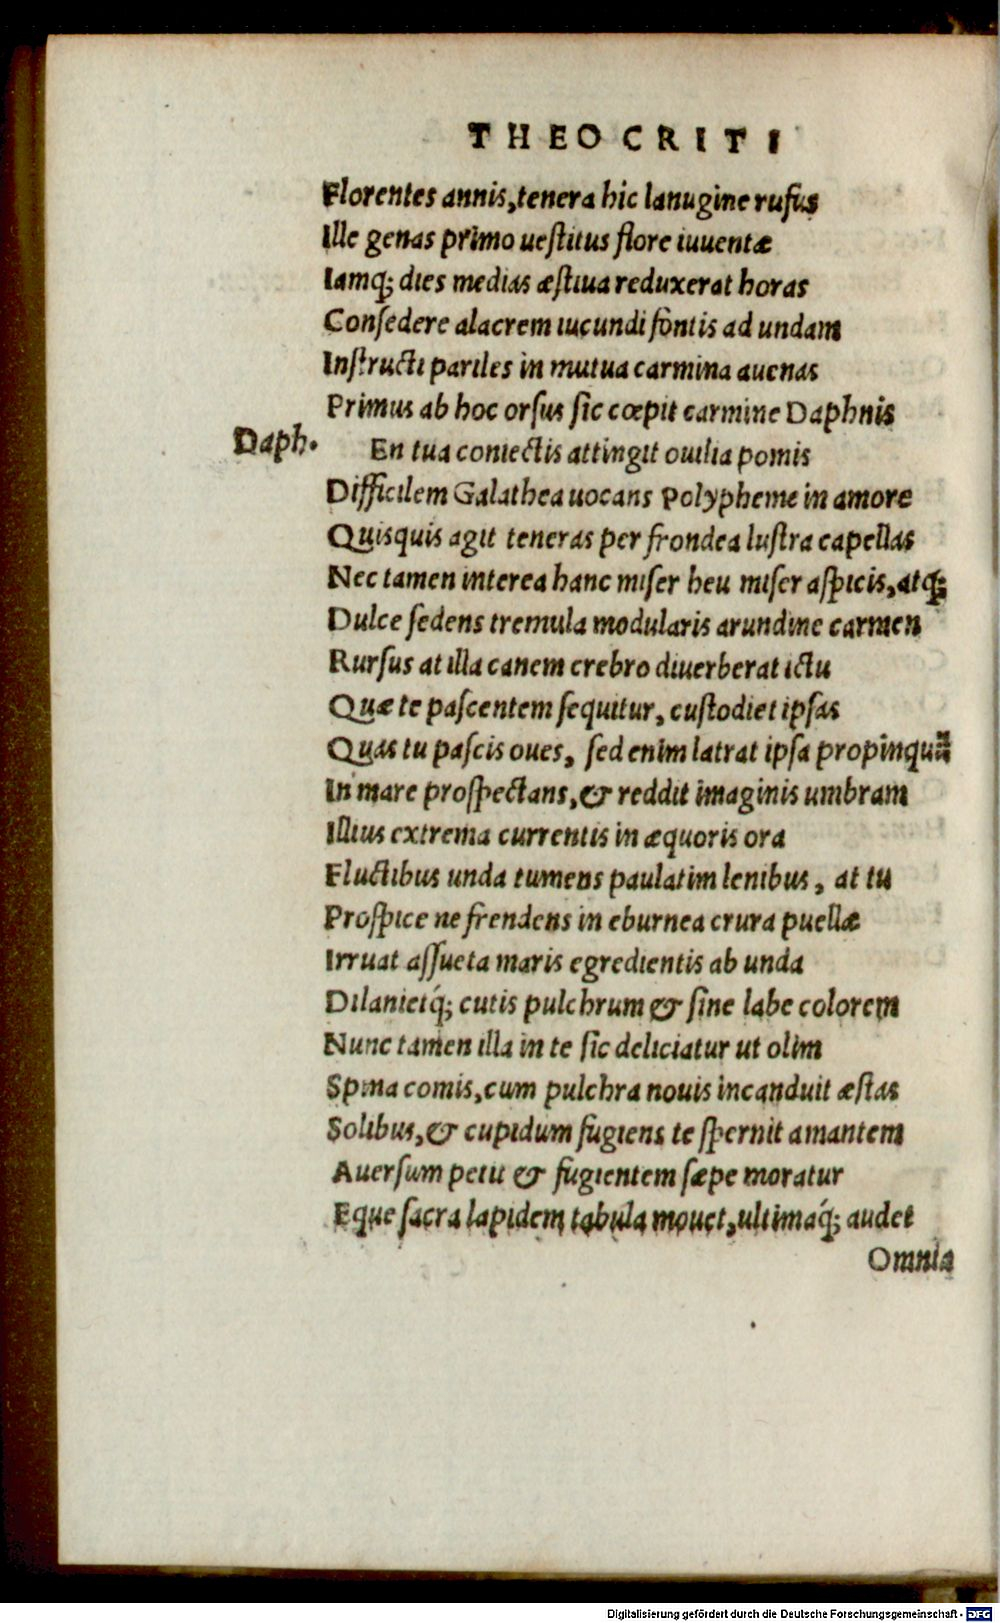 THEOCRITI
Florentes annis, tenera hic lanugine rufus
Ille genas primo uestitus flore iuuentæ
Iamq́; dies medias æstiua reduxerat horas
Consedere alacrem iucundi fontis ad undam
Instructi pariles in mutua carmina auenas
Primus ab hoc orsus sic cœpit carmine Daphnis
Daph. En tua coniectis attingit ouilia pomis
Difficilem Galathea uocans Polypheme in amore
Quisquis agit teneras per frondea lustra capellas
Nec tamen interea hanc miser heu miser aspicis, atq́;
Dulce sedens tremula modularis arundine carmen
Rursus at illa canem crebro diuerberat ictu
Quæ te pascentem sequitur, custodiet ipsas
Quas tu pascis oues, sed enim latrat ipsa propinquū
In mare prospectans, & reddit imaginis umbram
Illius extrema currentis in æquoris ora
Fluctibus unda tumens paulatim lenibus, at tu
Prospice ne frendens in eburnea crura puellæ
Irruat assueta maris egredientis ab unda
Dilanietq́; cutis pulchrum & sine labe colorem
Nunc tamen illa in te sic deliciatur ut olim
Spina comis, cum pulchra nouis incanduit æstas
Solibus, & cupidum fugiens te spernit amantem
Auersum petit & fugientem sæpe moratur
Eque sacra lapidem tabula mouet, ultimaq́; audet
Omnia
Digitalisierung gefördert durch die Deutsche Forschungsgemeinschaft - DFG